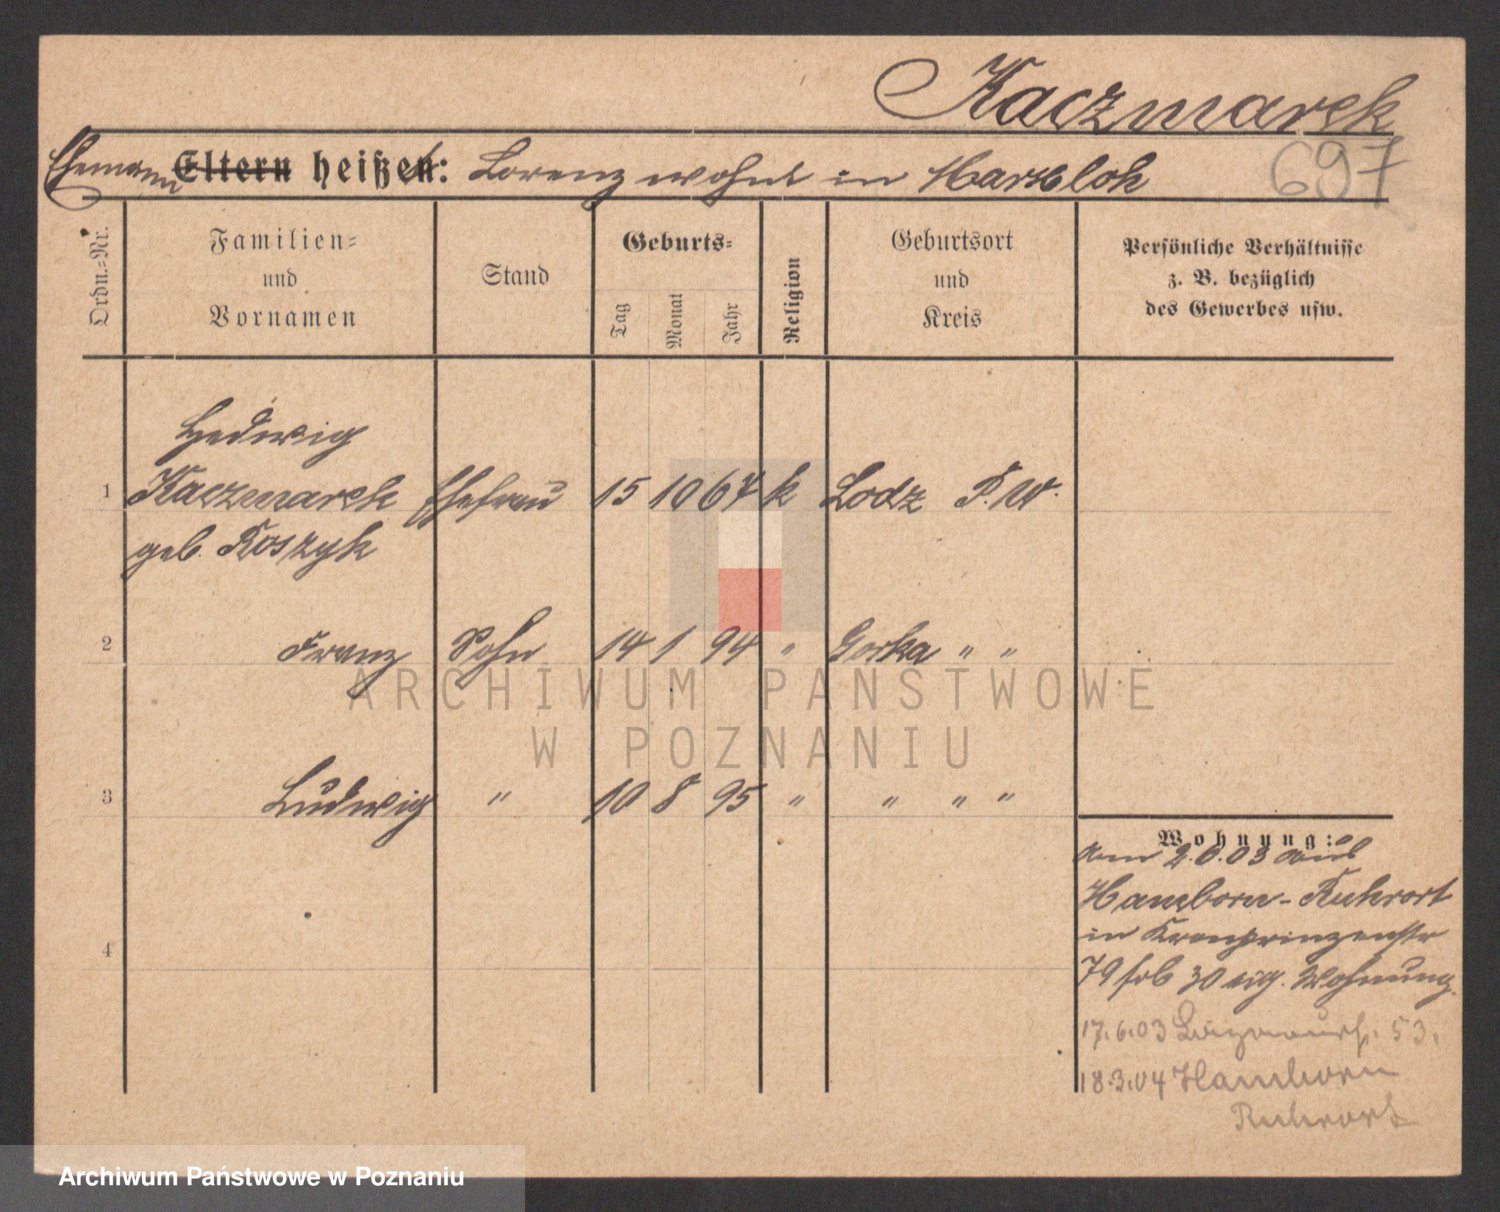 Kaczmarek
697
Ehemann Eltern heißen: Lorenz wohnt in Marxloh
Ordn.-Nr.
Familien-
und
Vornamen
Stand
Geburts-
Tag
Monat
Jahr
Religion
Geburtsort
und
Kreis
Persönliche Verhältnisse
z. B. bezüglich
des Gewerbes usw.
Hedwig
1 Kaczmarek Ehefrau 15 10 67 k Lodz P. W.
geb. Koszyk
2 Franz Sohn 14 1 94 " Gorka " "
3 Ludwig " 10 8 95 " " " "
4
Wohnung:
am 2.6.03 aus
Hamborn-Ruhrort
in Kronprinzenstr
79 30 eig. Wohnung.
17.6.03 53.
18.3.04 Hamborn
Ruhrort
ARCHIWUM PAŃSTWOWE
W POZNANIU
Archiwum Państwowe w Poznaniu